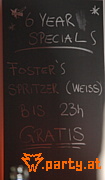 6 YEAR
SPECIALS
FOSTER'S
SPRITZER (WEISS)
BIS 23h
GRATIS
party.at